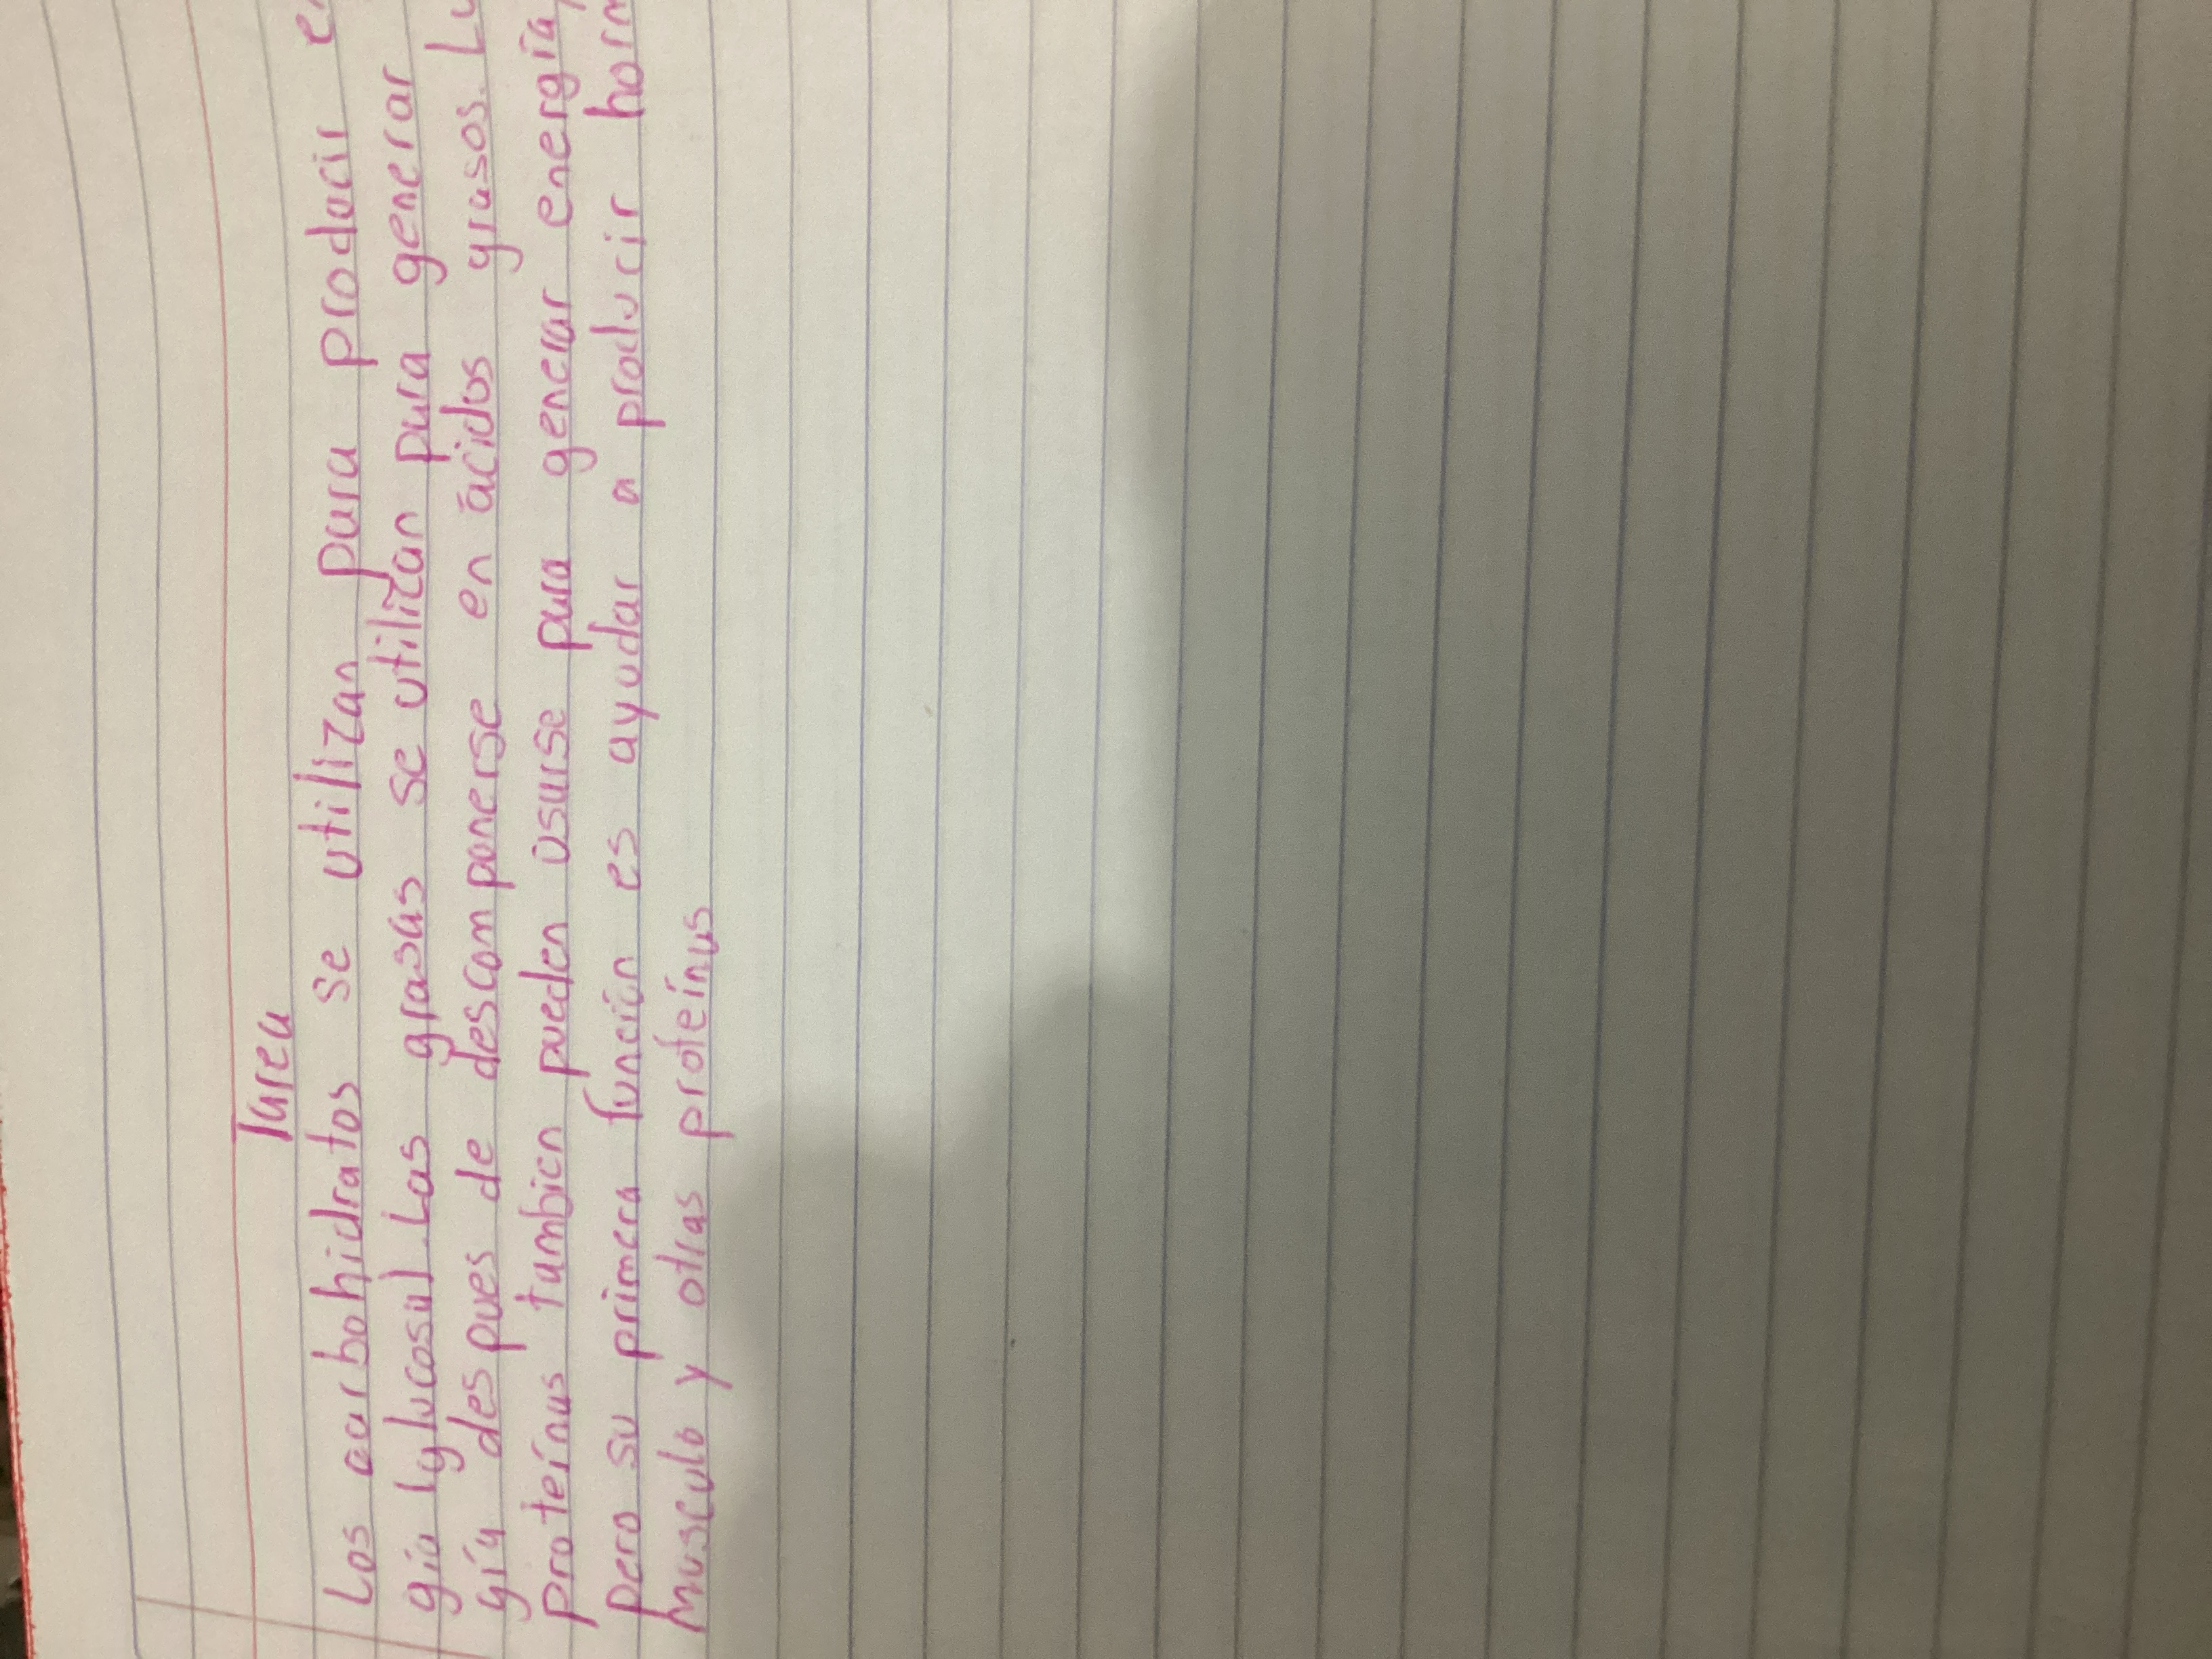 Tarea
Los carbohidratos se utilizan para producir e
gía (glucosa). Las grasas se utilizan para generar
gía despues de descomponerse en ácidos grasos. La
proteínas tambien pueden usarse para generar energía,
pero su primera función es ayudar a producir horm
músculo y otras proteínas